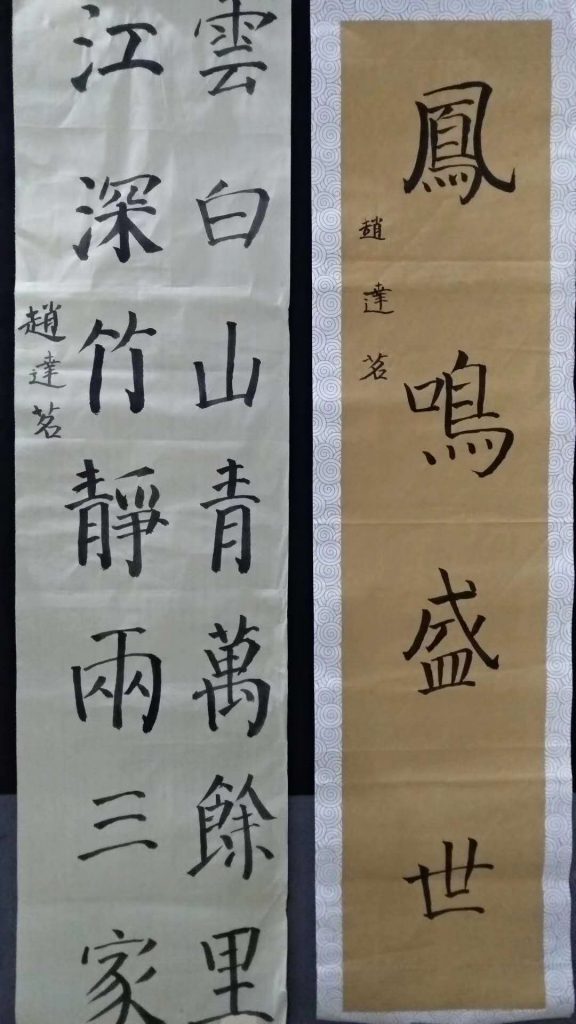 鳳鳴盛世
趙達茗
雲白山青萬餘里
江深竹靜兩三家
趙達茗